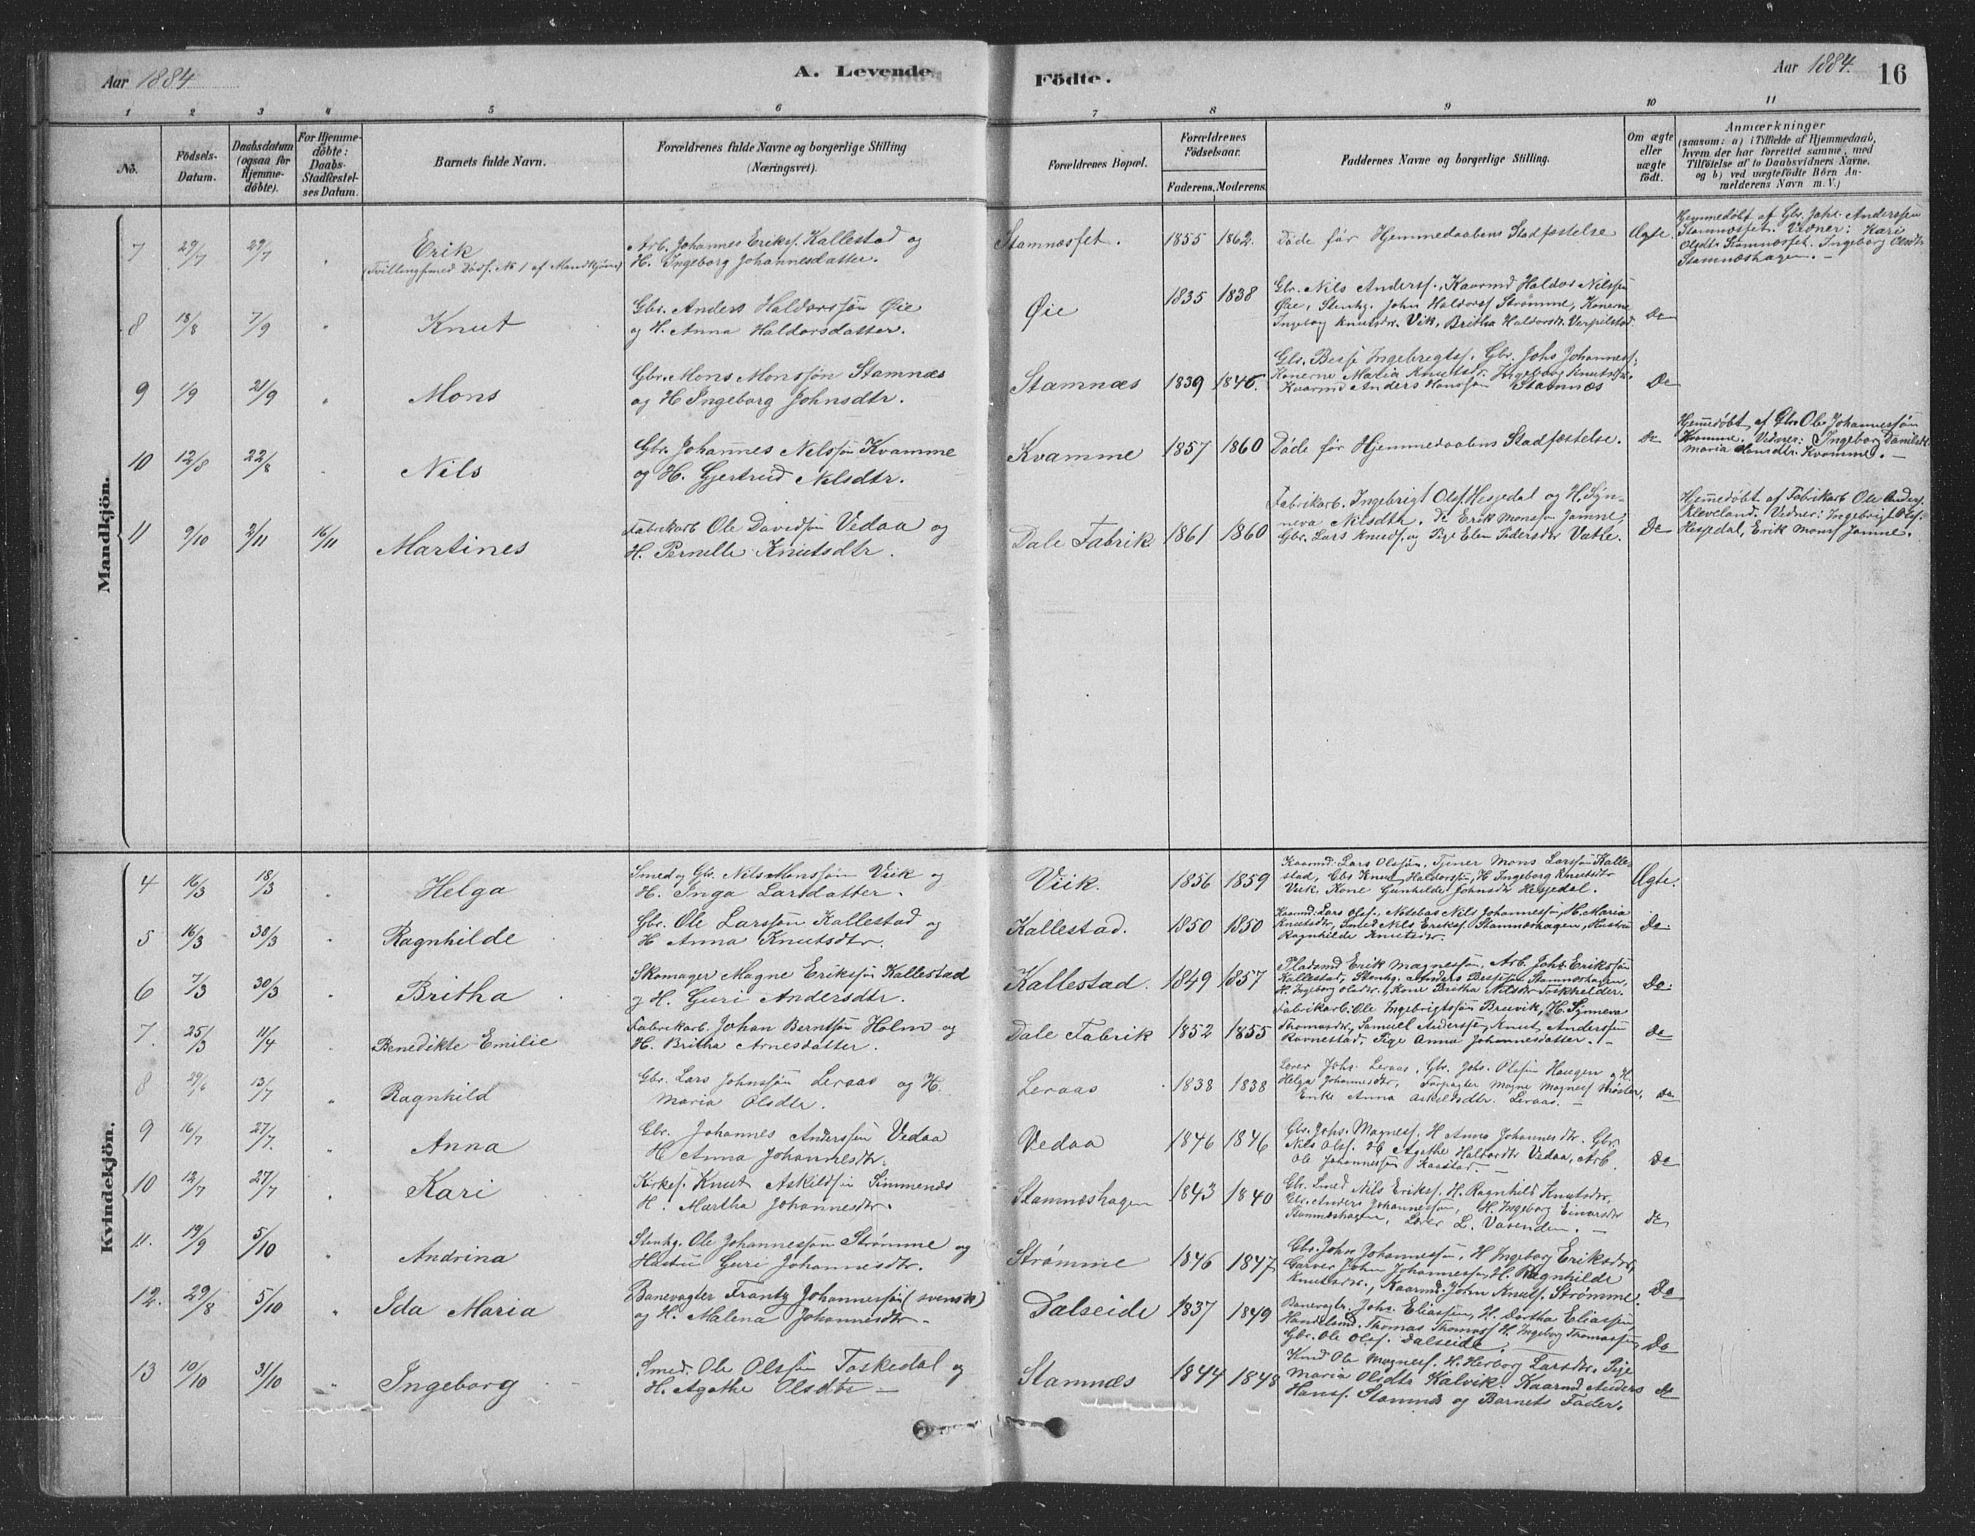 Aar 1884
A. Levende
Födte.
Aar 1884.
16
1 2 3 4 5 6 7 8 9 10 11
No.
Födsels-Datum.
Daabsdatum (ogsaa for Hjemmedöbte).
For Hjemmedöbte: Daabs-Stadfæstelses Datum.
Barnets fulde Navn.
Forældrenes fulde Navne og borgerlige Stilling
(Næringsvei).
Forældrenes Bopæl.
Forældrenes Födselsaar.
Faderens. Moderens.
Faddernes Navne og borgerlige Stilling.
Om ægte eller uægte födt.
Anmærkninger
(saasom: a) i Tilfælde af Hjemmedaab,
hvem der har forrettet samme, med
Tilföielse af to Daabsvidners Navne,
og b) ved uægtefödte Börn An-
melderens Navn m. V.)
Mandkjön.
7 29/7 29/7 " Erik
(Tvilling med Dødf. No 1 af Mandkjøn)
Arb. Johannes Erikss. Kallestad og
H. Ingeborg Johannesdatter.
Stamnæsfet. 1855 1862.
Døde før Hjemmedaabens Stadfæstelse
Ægte.
Hjemmedøbt af Gbr. Johs. Anderssen
Stamnæsfet. Vidner: Kari
Olsdtr. Stamnæsfet. Ingeborg Olsdtr
Stamnæshagen. —
8 18/8 7/9 " Knut
Gbr. Anders Haldorssøn Øie
og H. Anna Haldorsdatter.
Øie 1835 1838
Gbr. Nils Anderss., Kaarmd Haldor Nilssøn
Øie, Stenhg. John Haldorss Strømme, Konerne
Ingeborg Knutsdtr. Vik, Britha Haldorsdtr. Verpelstad
Do
9 1/9 21/9 " Mons
Gbr. Mons Monssøn Stamnæs
og H Ingeborg Johnsdtr.
Stamnæs 1839 1846.
Gbr. Besse Ingebregtss. Gbr. Johs Johanness.
Konerne Maria Knutsd. Ingeborg Knutsdtr.
Kaarmd Anders Hanssøn Stamnæs
Do
10 12/8 22/8 " Nils
Gbr. Johannes Nilssøn Kvamme
og H. Gjertrud Nilsdtr.
Kvamme 1857 1860
Døde før Hjemmedaabens Stadfæstelse.
Do
Hjemedøbt af Gbr. Ole Johannessøn
Kvamme. Vidner: Ingeborg Danilsdtr
Maria Hansdtr. Kvamme. —
11 9/10 2/11 16/11 Martines
Fabrikarb Ole Davidsøn Vedaa og
H. Pernille Knutsdtr.
Dale Fabrik 1861 1860
Fabrikarb. Ingebrigt Olss Hesjedal og H. Syn-
neva Nilsdtr. Do Erik Monssøn Jamne,
Gbr. Lars Knuds. og Pige Elen Pedersdtr Vatle.
Do
Hjemedøbt af Fabrikarb. Ole Anders.
Kleveland. Vidner: Ingebrigt Ols.
Hesjedal, Erik Monss Jamne.
Kvindekjön.
4 16/3 18/3 " Helga
Smed og Gbr. Nils Monssøn Viik og
H. Inga Larsdatter.
Viik. 1856 1859
Kaarmd Lars Olssøn, Tjener Mons Larssøn Kalle-
stad, Gbr Knut Haldorssøn, H Ingeborg Knutsdtr
Viik. Kone Gunhilde Johnsdtr Hesjedal.
Ægte.
5 16/3 30/3 " Ragnhilde
Gbr. Ole Larssøn Kallestad og
H Anna Knutsdtr.
Kallestad. 1850 1850
Kaarmd. Lars Olss., Notebas Nils Johannessøn, H. Maria
Knutsdtr, Smed Nils Erikss. Stamnæshagen, Hustru
Ragnhilde Knutsdtr.
Do.
6 7/3 30/3 " Britha
Skomager Magne Erikssøn Kallestad
og H. Guri Andersdtr.
Kallestad 1849 1857
Pladsmd Erik Magnessøn, Arb. Johs Erikssøn
Kallestad, Stenhg. Anders Bessesøn Stamnæshagen,
H. Ingeborg Olsdtr., Kone Britha Nilsdtr
Do.
7. 25/3 11/4 " Benedikte Emilie
Fabrikarb. Johan Berntsøn Holm og
H. Britha Arnesdatter.
Dale Fabrik 1852 1855
Fabrikarb. Ole Ingebrigtssøn Bruvik, H. Synneva
Thomasdtr, Samuel Anderssen, Knut Anderssøn
Ravnestad, Pige Anna Johannesdatter. —
Do
8 29/6 13/7 " Ragnhild
Gbr. Lars Johnssøn Leraas og H
Maria Olsdtr.
Leraas 1838 1838
Lærer Johs. Leraas, Gbr. Johs. Olssøn Haugen og H.
Helga Johannesdtr, Forpagter Magne Magness
Enke Anna Askeldsdtr. Leraas. —
Do
9 16/7 27/7. " Anna
Gbr. Johannes Anderssøn Vedaa
H Anna Johannesdtr.
Vedaa 1846 1846
Gbr. Johs. Magness. H Anna Johannesdtr. Gbr.
Nils Olss. H Agathe Haldorsdtr Vedaa, Arb.
Ole Johannessøn Kaastad. —
Do
10 12/7 27/7 " Kari
Kirkes. Knut Askildsøn Simmenæs
H. Martha Johannesdtr.
Stamnæshagen 1843 1840
Gbr. Smed Nils Erikss. H. Ragnhild Knutsdtr,
Gbr. Anders Johannessøn, H. Ingeborg Einarsdtr
Stamnæshagen, Lærer L. Vavenden. —
Do
11. 19/9 5/10 " Andrina
Stenhg. Ole Johannessøn Strømme og
Hustru Guri Johannesdtr.
Strømme 1846 1847
Gbr. John Johannessøn, H Ingeborg Eriksdtr,
Garver John Johannessen, H. Ragnhilde
Knutsdtr, Kaarmd. John Knutss. Strømme.
Do
12. 29/8 5/10 " Ida Maria
Banevagter Frantz Johannessøn (svensk)
og H. Malena Johannesdtr. —
Dalseide 1837 1849
Banevagtr. Johs. Eliassen, H. Dorthea Eliassen,
Handelsmd. Thomas Thomass H. Ingeborg Thomassen
Gbr. Ole Olss. Dalseide. —
Do
13 10/10 31/10 " Ingeborg
Smed. Ole Olssøn Toskedal og
H. Agathe Olsdtr —
Stamnæs 1844 1848
Smd Ole Magness. H. Herborg Larsdtr. Pige
Maria Olsdtr Kalvik. Kaarmd Anders
Hanss. Stamnæs og Barnets Fader.
Do